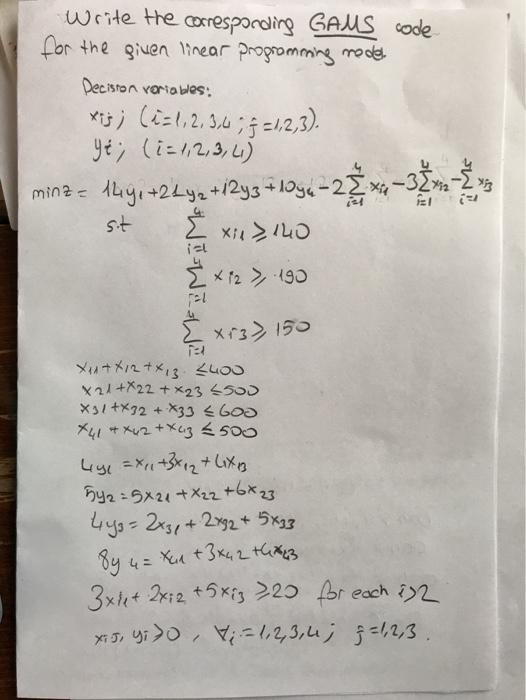 Write the corresponding GAMS code
for the given linear programming model
Decision variables:
xij; (i=1,2,3,4; j=1,2,3).
yi; (i=1,2,3,4)
min z = 14y1+21y2+12y3+10y4-2∑i=1^4 xi1-3∑i=1^4 xi2-∑i=1^4 xi3
s.t ∑i=1^4 xi1 ≥ 140
∑i=1^4 xi2 ≥ 190
∑i=1^4 xi3 ≥ 150
x11+x12+x13 ≤400
x21+x22+x23 ≤500
x31+x32+x33 ≤600
x41+x42+x43 ≤500
4y1 = x11+3x12+4x13
5y2 = 5x21+x22+6x23
4y3 = 2x31+2x32+5x33
8y4 = x41+3x42+4x43
3xi1+2xi2+5xi3 ≥20 for each i>2
xij, yi ≥0, ∀i=1,2,3,4; j=1,2,3.